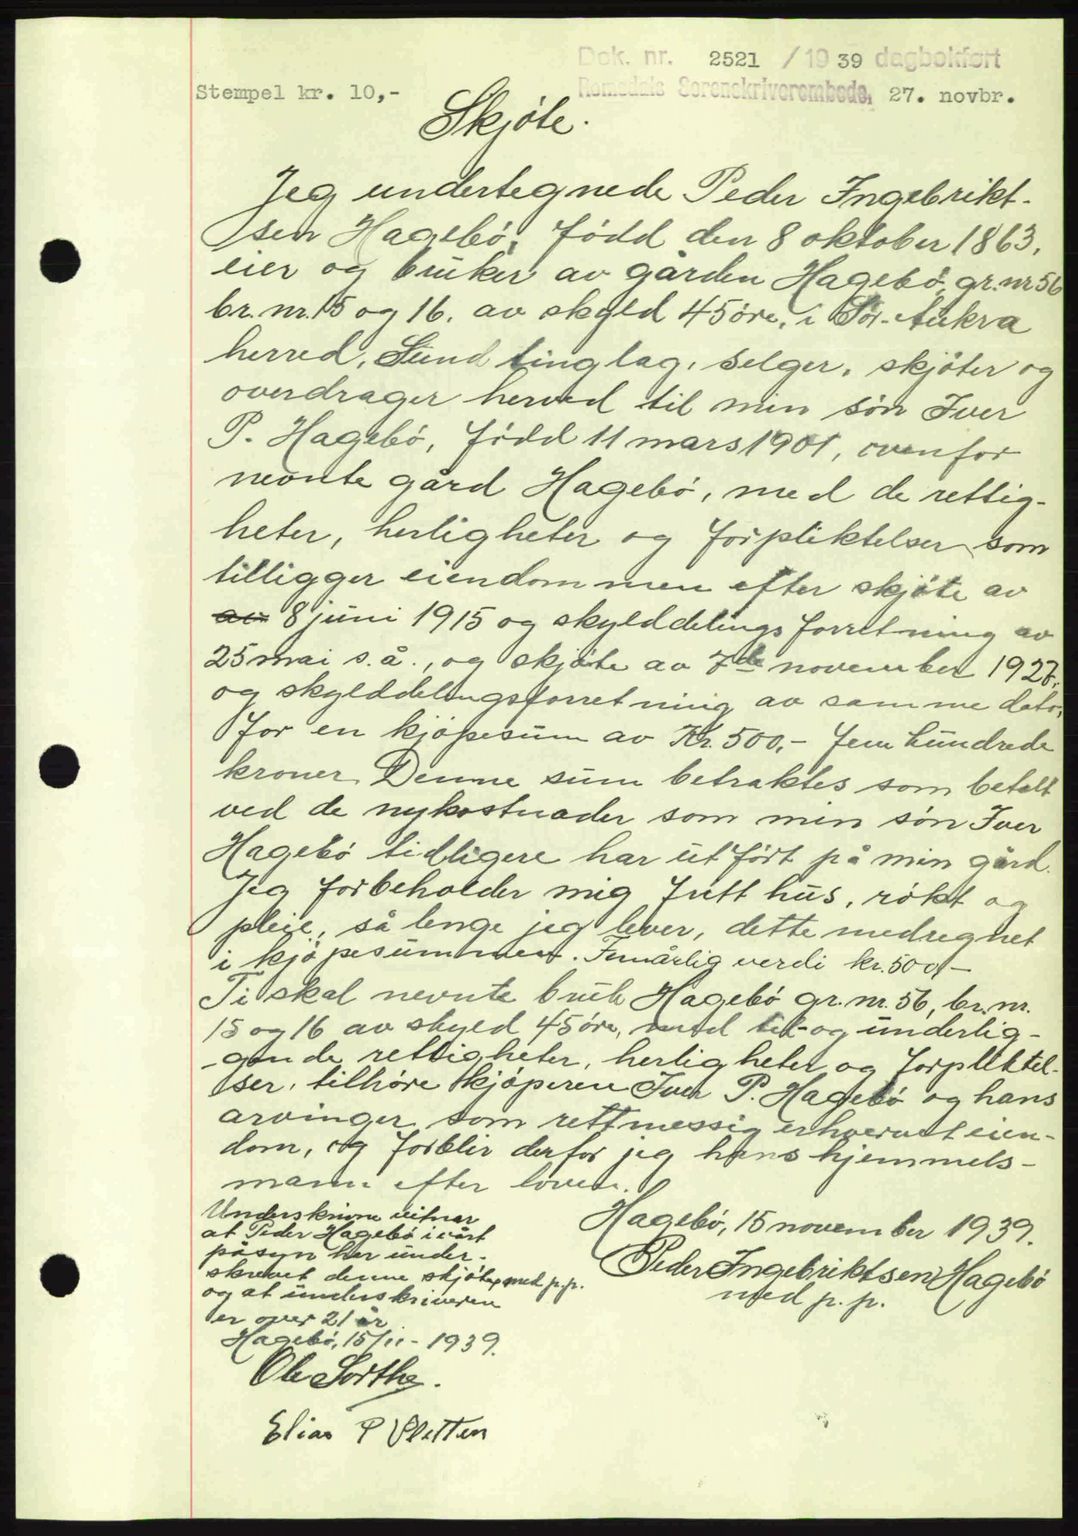 Dok. nr. 2521 / 19 39 dagbokført
Stempel kr. 10,-
Romsdals Sorenskriverembede, 27. novbr.
Skjöte.
Jeg undertegnede Peder Ingebrikt-
sen Hagebö, född den 8 oktober 1863,
eier og bruker av gården Hagebö, gr.nr 56
br.nr.15 og 16. av skyld 45 öre, i Sör-Aukra
herred, Sund tinglag, selger, skjöter og
overdrager herved til min sön Iver
P. Hagebö, född 11 mars 1901, ovenfor
nevnte gård Hagebö, med de rettig-
heter, herligheter og forpliktelser som
tilligger eiendommen efter skjöte av
av 8 juni 1915 og skylddelingsforretning av
25 mai s.å., og skjöte av 7de november 1927,
og skylddelingsforretning av samme dato,
for en kjöpesum av Kr. 500,- fem hundrede
kroner. Denne sum betraktes som betalt
ved de nykostnader som min sön Iver
Hagebö tidligere har utfört på min gård.
Jeg forbeholder mig fritt hus, rökt og
pleie, så lenge jeg lever, dette medregnet
i kjöpesummen. Femårlig verdi kr. 500,-
Ti skal nevnte bruk Hagebö gr. nr. 56, br. nr.
15 og 16 av skyld 45 öre, med til- og underlig-
gende rettigheter, herligheter og forpliktel-
ser, tilhöre kjöperen Iver P. Hagebö og hans
arvinger som rettmessig erhvervet eien-
dom, og forblir derfor jeg hans hjemmels-
mann efter loven.
Hagebö, 15 november 1939.
Peder Ingebriktsen Hagebö
med p. p.
Underskrivne vitner
at Peder Hagebö i vårt
påsyn har under-
skrevet denne skjöte, med p.p.
og at underskriveren
er over 21 år
Hagebö, 15/11 - 1939.
Ole Sorthe.
Elias P Sletten